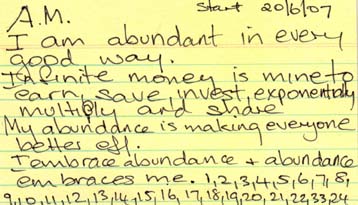 A.M. Start 20/6/07
I am abundant in every
good way.
Infinite money is mine to
earn, save, invest, exponentially
multiply and share
My abundance is making everyone
better off.
I embrace abundance + abundance
embraces me. 1,2,3,4,5,6,7,8,
9,10,11,12,13,14,15,16,17,18,19,20,21,22,23,24